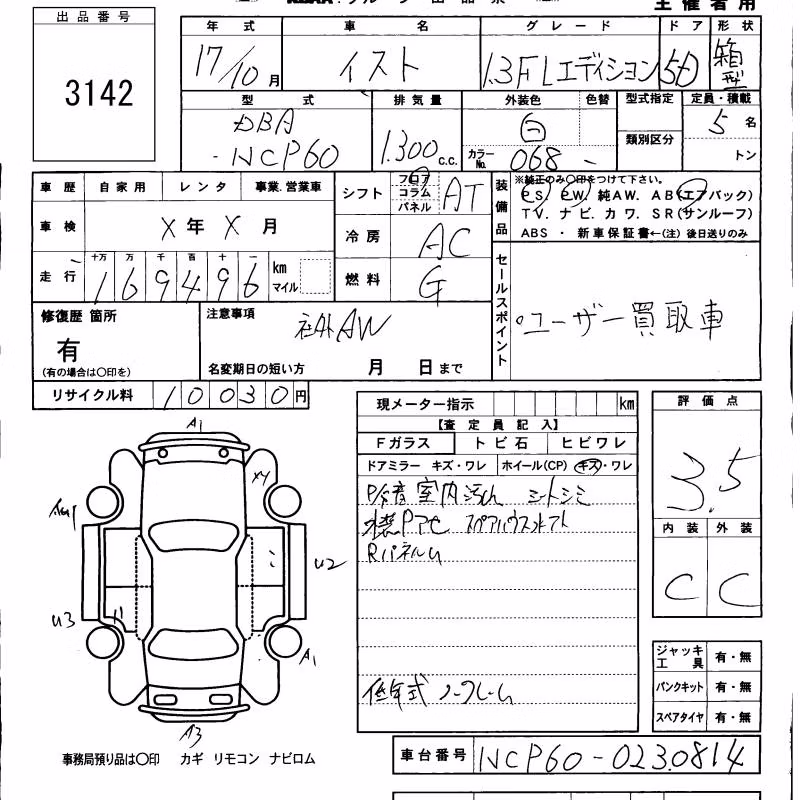 主催者用
出品番号
3142
年式 車名 グレード ドア 形状
17/10月 イスト 1.3FLエディション 5D 箱型
型式 排気量 外装色 色替 型式指定 定員・積載
DBA
-NCP60 1.300c.c. 白 カラーNo. 068 - 類別区分 5名
トン
車歴 自家用 レンタ 事業.営業車
シフト フロア コラム パネル AT
装備品 ※純正のみ〇印をつけて下さい。
PS. PW. 純AW. AB(エアバック)
TV. ナビ. カワ. SR(サンルーフ)
ABS ・ 新車保証書←(注) 後日送りのみ
車検 X年X月
冷房 AC
走行 十万 万 千 百 十 一
169496 km マイル
燃料 G
セールスポイント
ユーザー買取車
修復歴 箇所
有
(有の場合は〇印を)
注意事項
社外AW
名変期日の短い方 月 日まで
リサイクル料 10030円
現メーター指示 km
【査定員記入】
Fガラス トビ石 ヒビワレ
ドアミラー キズ・ワレ ホイール(CP) キズ・ワレ
室内汚れ シートシミ
スペアハウス
RパネルU
低年式
評価点
3.5
内装 外装
C C
A1
XY
U2
U3
A1
A3
ジャッキ工具 有・無
パンクキット 有・無
スペアタイヤ 有・無
事務局預り品は〇印 カギ リモコン ナビロム
車台番号 NCP60-0230814